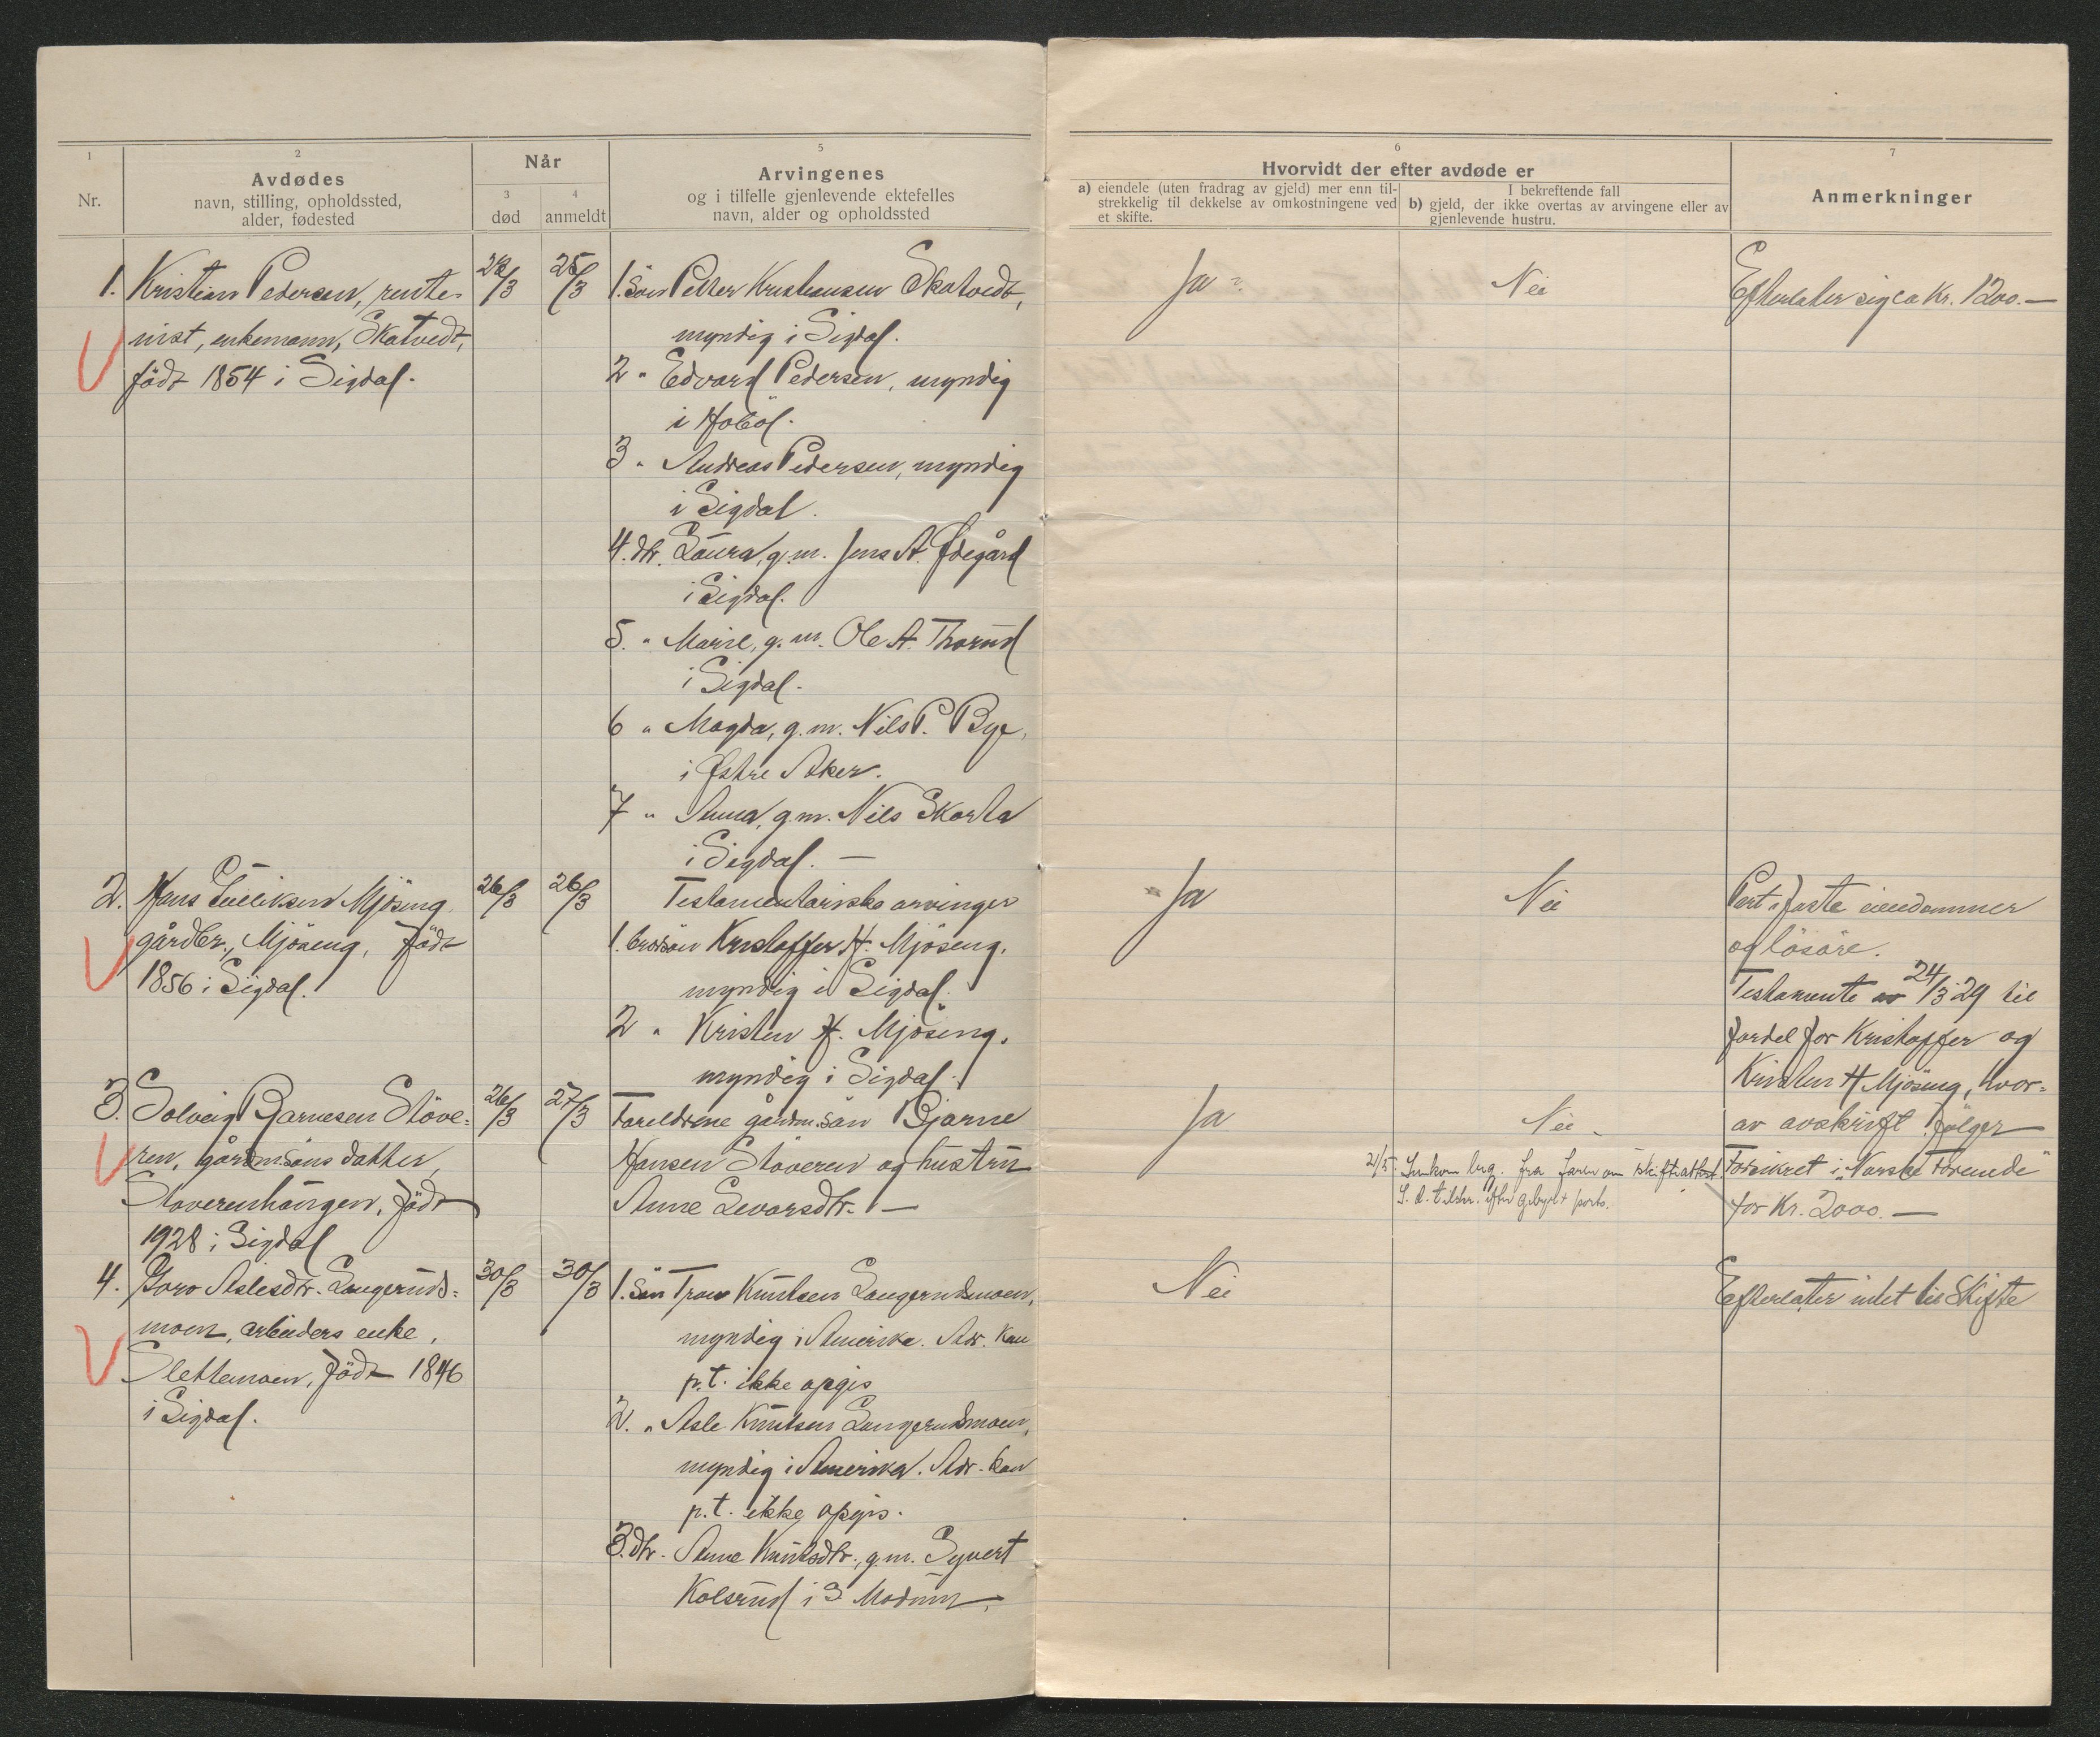 1
2
Når
5
6
7
Avdødes
Arvingenes
Hvorvidt der efter avdøde er
Nr.
navn, stilling, opholdssted,
alder, fødested
3
død
4
anmeldt
og i tilfelle gjenlevende ektefelles
navn, alder og opholdssted
a) eiendele (uten fradrag av gjeld) mer enn til-
strekkelig til dekkelse av omkostningene ved
et skifte.
I bekreftende fall
b) gjeld, der ikke overtas av arvingene eller av
gjenlevende hustru.
Anmerkninger
1. Kristian Pedersen, rente-
nist, enkemann, Skatvedt,
født 1854 i Sigdal.
/3
25/3
1. Sön Petter Kristiansen Skatvedt,
myndig i Sigdal.
2 " Edvard Pedersen, myndig
i Hobøl.
3 " Andreas Pedersen, myndig
i Sigdal.
4. dtr. Laura, g.m. Jens A. Ødegård
i Sigdal.
5. " Marie, g.m. Ole A. Thorud
i Sigdal.
6 " Magda, g.m. Nils P. Bye,
i Østre Aker.
7 " Anna, g.m. Nils Skarta
i Sigdal. —
Ja
Nei
Efterlater sig ca Kr. 1200.—
2. Hans Mjøseng
gårdbr., Mjøseng, født
1856 i Sigdal.
26/3
26/3
Testamentariske arvinger
1. brorsön Kristoffer H. Mjøseng,
myndig i Sigdal.
2 " Kristen H. Mjøseng,
myndig i Sigdal.
Ja
Nei
faste eiendommer
og løsøre.
Testamente av 24/3 29 til
fordel for Kristoffer og
Kristen H Mjøseng, hvor=
av avskrift følger
3. Solveig Bjarnesen Støve=
ren, gårdm.søns datter,
Støverenhaugen, født
1928 i Sigdal
26/3
27/3
Foreldrene gårdm.sön Bjarne
Hansen Støveren og hustru
Anne Sevarsdtr. —
Ja
Nei.
2/5 Innkom beg. fra faren om skifteattest.
S. d. tilskr. efter gebyr + porto.
Forsikret i „Norske Forenede"
for Kr. 2000.—
4. Goro Aslesdtr. Langeruds=
moen, arbeiders enke,
Slettemoen, født 1846
i Sigdal.
30/3
30/3
1. Sön Knutsen Langerudsmoen,
myndig i Amerika. Adr. kan
p.t. ikke opgis
2. " Asle Knutsen Langerudsmoen,
myndig i Amerika. Adr. kan
p.t. ikke opgis.
3. dtr. Anne Knutsdtr., g.m. Syvert
Kolsrud i S Modum.
Nei
Efterlater intet til Skifte